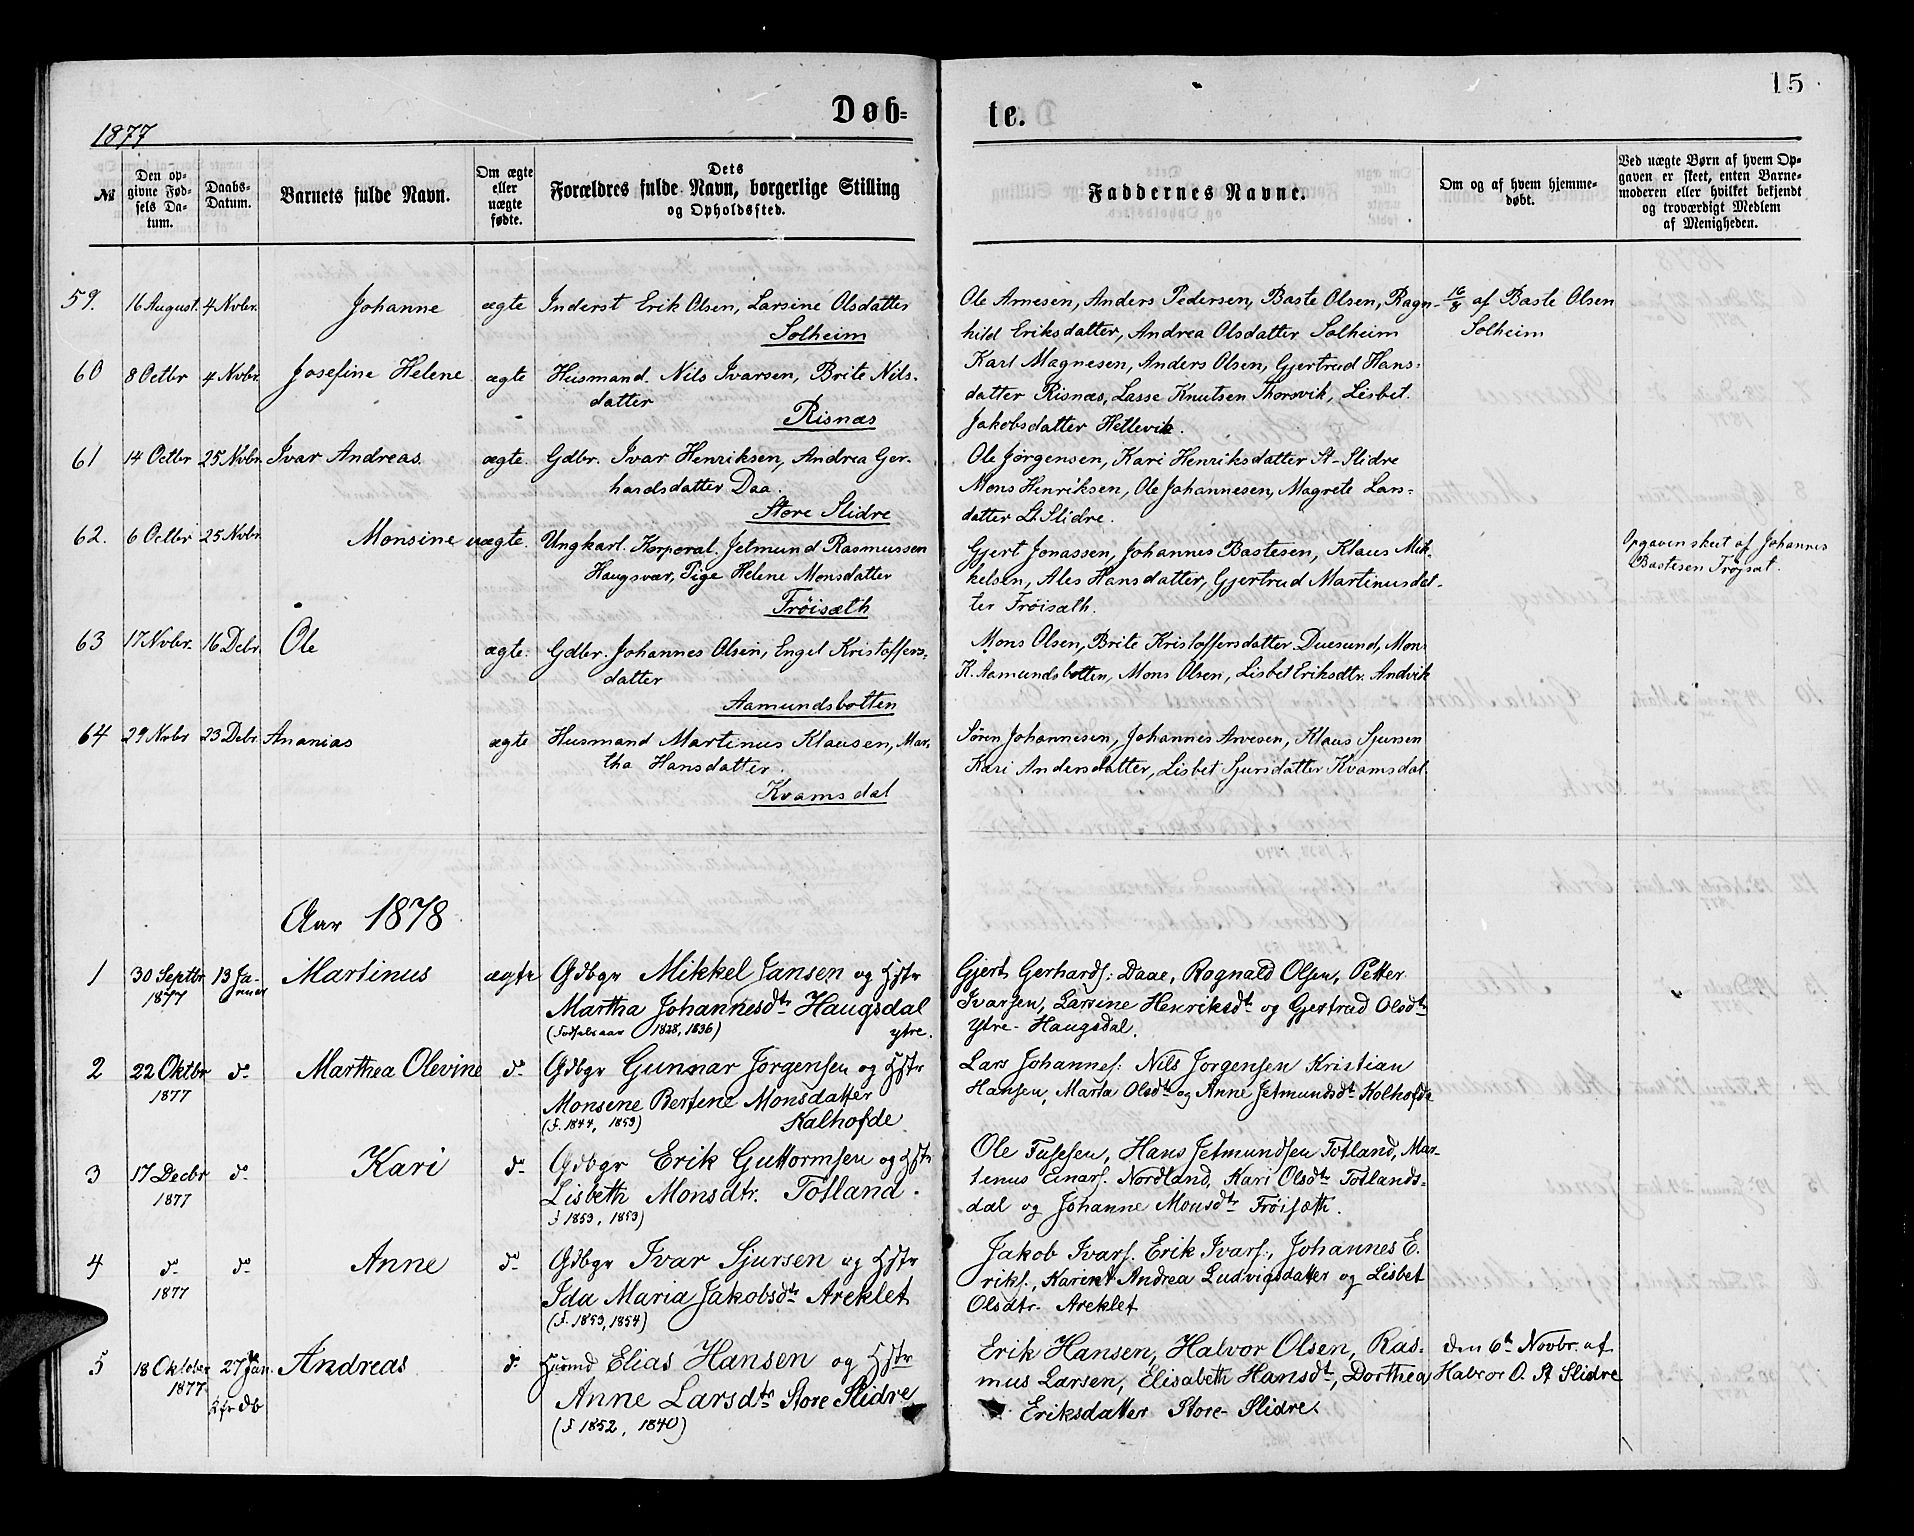 15
Døb=
te.
1877
№
Den op-
givne Fød-
sels Da-
tum.
Daabs-
Datum.
Barnets fulde Navn.
Om ægte
eller
uægte
fødte.
Dets
Forældres fulde Navn, borgerlige Stilling
og Opholdssted.
Faddernes Navne.
Om og af hvem hjemme-
døbt.
Ved uægte Børn af hvem Op-
gaven er skeet, enten Barne-
moderen eller hvilket bekjendt
og troværdigt Medlem
af Menigheden.
59. 16 August. 4 Nvbr. Johanne ægte Inderst Erik Olsen, Larsine Olsdatter
Solheim
Ole Arnesen, Anders Pedersen, Baste Olsen, Ragn-
hild Eriksdatter, Andrea Olsdatter Solheim
16/8 af Baste Olsen
Solheim
60 8 Octbr 4 Nvbr. Josefine Helene ægte Husmand. Nils Ivarsen, Brite Nils-
datter
Risnæs
Karl Magnesen, Anders Olsen, Gjertrud Hans-
datter Risnæs, Lasse Knutsen Thorsvik, Lisbet
Jakobsdatter Hellevik.
61 14 Octbr 25 Nvbr. Ivar Andreas. ægte. Gdbr. Ivar Henriksen, Andrea Ger-
hardsdatter Daa.
Store Slidre
Ole Jørgensen, Kari Henriksdatter St-Slidre
Mons Henriksen, Ole Johannesen, Magrete Lars-
datter Lt. Slidre.
62. 6 Octbr 25 Nvbr. Monsine uægte. Ungkarl. Korporal. Jetmund Rasmussen
Haugsvær, Pige Helene Monsdatter
Frøisæth
Gjert Jonassen, Johannes Bastesen, Klaus Mik-
kelsen, Ales Hansdatter, Gjertrud Martinusdat-
ter Frøisæth.
Opgaven skeet af Johannes
Bastesen Frøjsæt.
63 17 Nvbr. 16 Debr. Ole ægte. Gdbr. Johannes Olsen, Engel Kristoffers-
datter
Aamundsbotten
Mons Olsen, Brite Kristoffersdatter Duesund, Mons
K. Aamundsbotten, Mons Olsen, Lisbet Eriksdtr. Andvik
64 29 Nvbr 23 Debr. Ananias ægte Husmand Martinus Klausen, Mar-
tha Hansdatter.
Kvamsdal
Søren Johannesen, Johannes Arvesen, Klaus Sjursen
Kari Andersdatter, Lisbet Sjursdatter Kvamsdal.
Aar 1878
1 30 Septbr 1877 13 Ja-
nuar Martinus ægte Gdbgr Mikkel Jansen og Hstr
Martha Johannesdtr Haugsdal
(Fødselsaar 1828, 1836) ytre.
Gjert Gerhards: Daae, Rognald Olsen, Petter
Ivarsen, Larsine Henriksdtr og Gjertrud Olsdtr
Ytre- Haugsdal.
2 22 Oktbr 1877 do Marthea Olevine do Gdbgr Gunnar Jørgensen og Hstr
Monsine Bertine Monsdatter
(F. 1844, 1853) Kalhofde
Lars Johannes: Nils Jorgensen Kristian
Hansen, Marta Olsdtr og Anne Jetmundsdtr Kolhofde
3 17 Decbr 1877 do Kari do Gdbgr Erik Guttormsen og Hstr
Lisbeth Monsdtr. Totland.
(F 1853, 1853)
Ole Tufesen, Hans Jetmundsen Totland, Mar-
tenus Einars. Nordland, Kari Olsdtr Totlands-
dal og Johanne Monsdtr Frøisæth.
4 do 1877 do Anne do Gdbgr Ivar Sjursen og Hstr
Ida Maria Jakobsdtr Areklet
(F. 1853, 1854)
Jakob Ivars. Erik Ivars:, Johannes E.
riks., Karen Andrea Ludvigsdatter og Lisbet
Olsdtr. Areklet
5 18 Oktober 1877 27 Jan. Andreas do Husmd Elias Hansen og Hstr
Anne Larsdtr Store Slidre
(F 1852, 1840)
Erik Hansen, Halvor Olsen, Ras-
mus Larsen, Elisabeth Hansdtr, Dorthea
Eriksdatter Store- Slidre.
den 6te Novbr. af
Halvor O. St Slidre